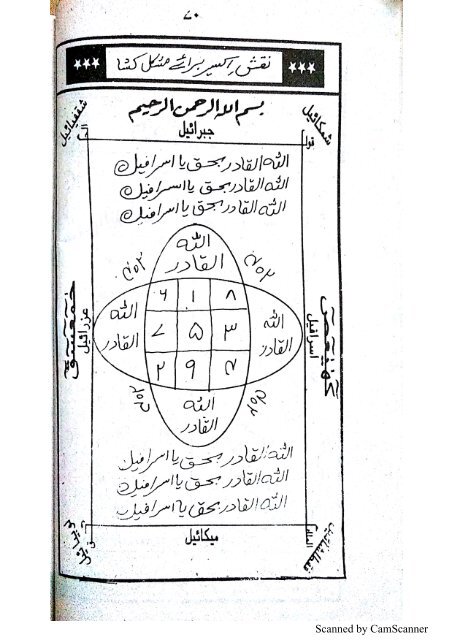 ۷۰
نقش اکسیر برائے مشکل کشا
بسم اللہ الرحمن الرحیم
جبرائیل
اللہ القادر بحق یا اسرافیل
اللہ القادر بحق یا اسرافیل
اللہ القادر بحق یا اسرافیل
اللہ
القادر
۶ ۱ ۸
۷ ۵ ۳
۲ ۹ ۴
اللہ
القادر
اللہ
القادر
اللہ
القادر
عزرائیل
اسرافیل
کھیعص
حمعسق
اللہ القادر بحق یا اسرافیل
اللہ القادر بحق یا اسرافیل
اللہ القادر بحق یا اسرافیل
میکائیل
Scanned by CamScanner